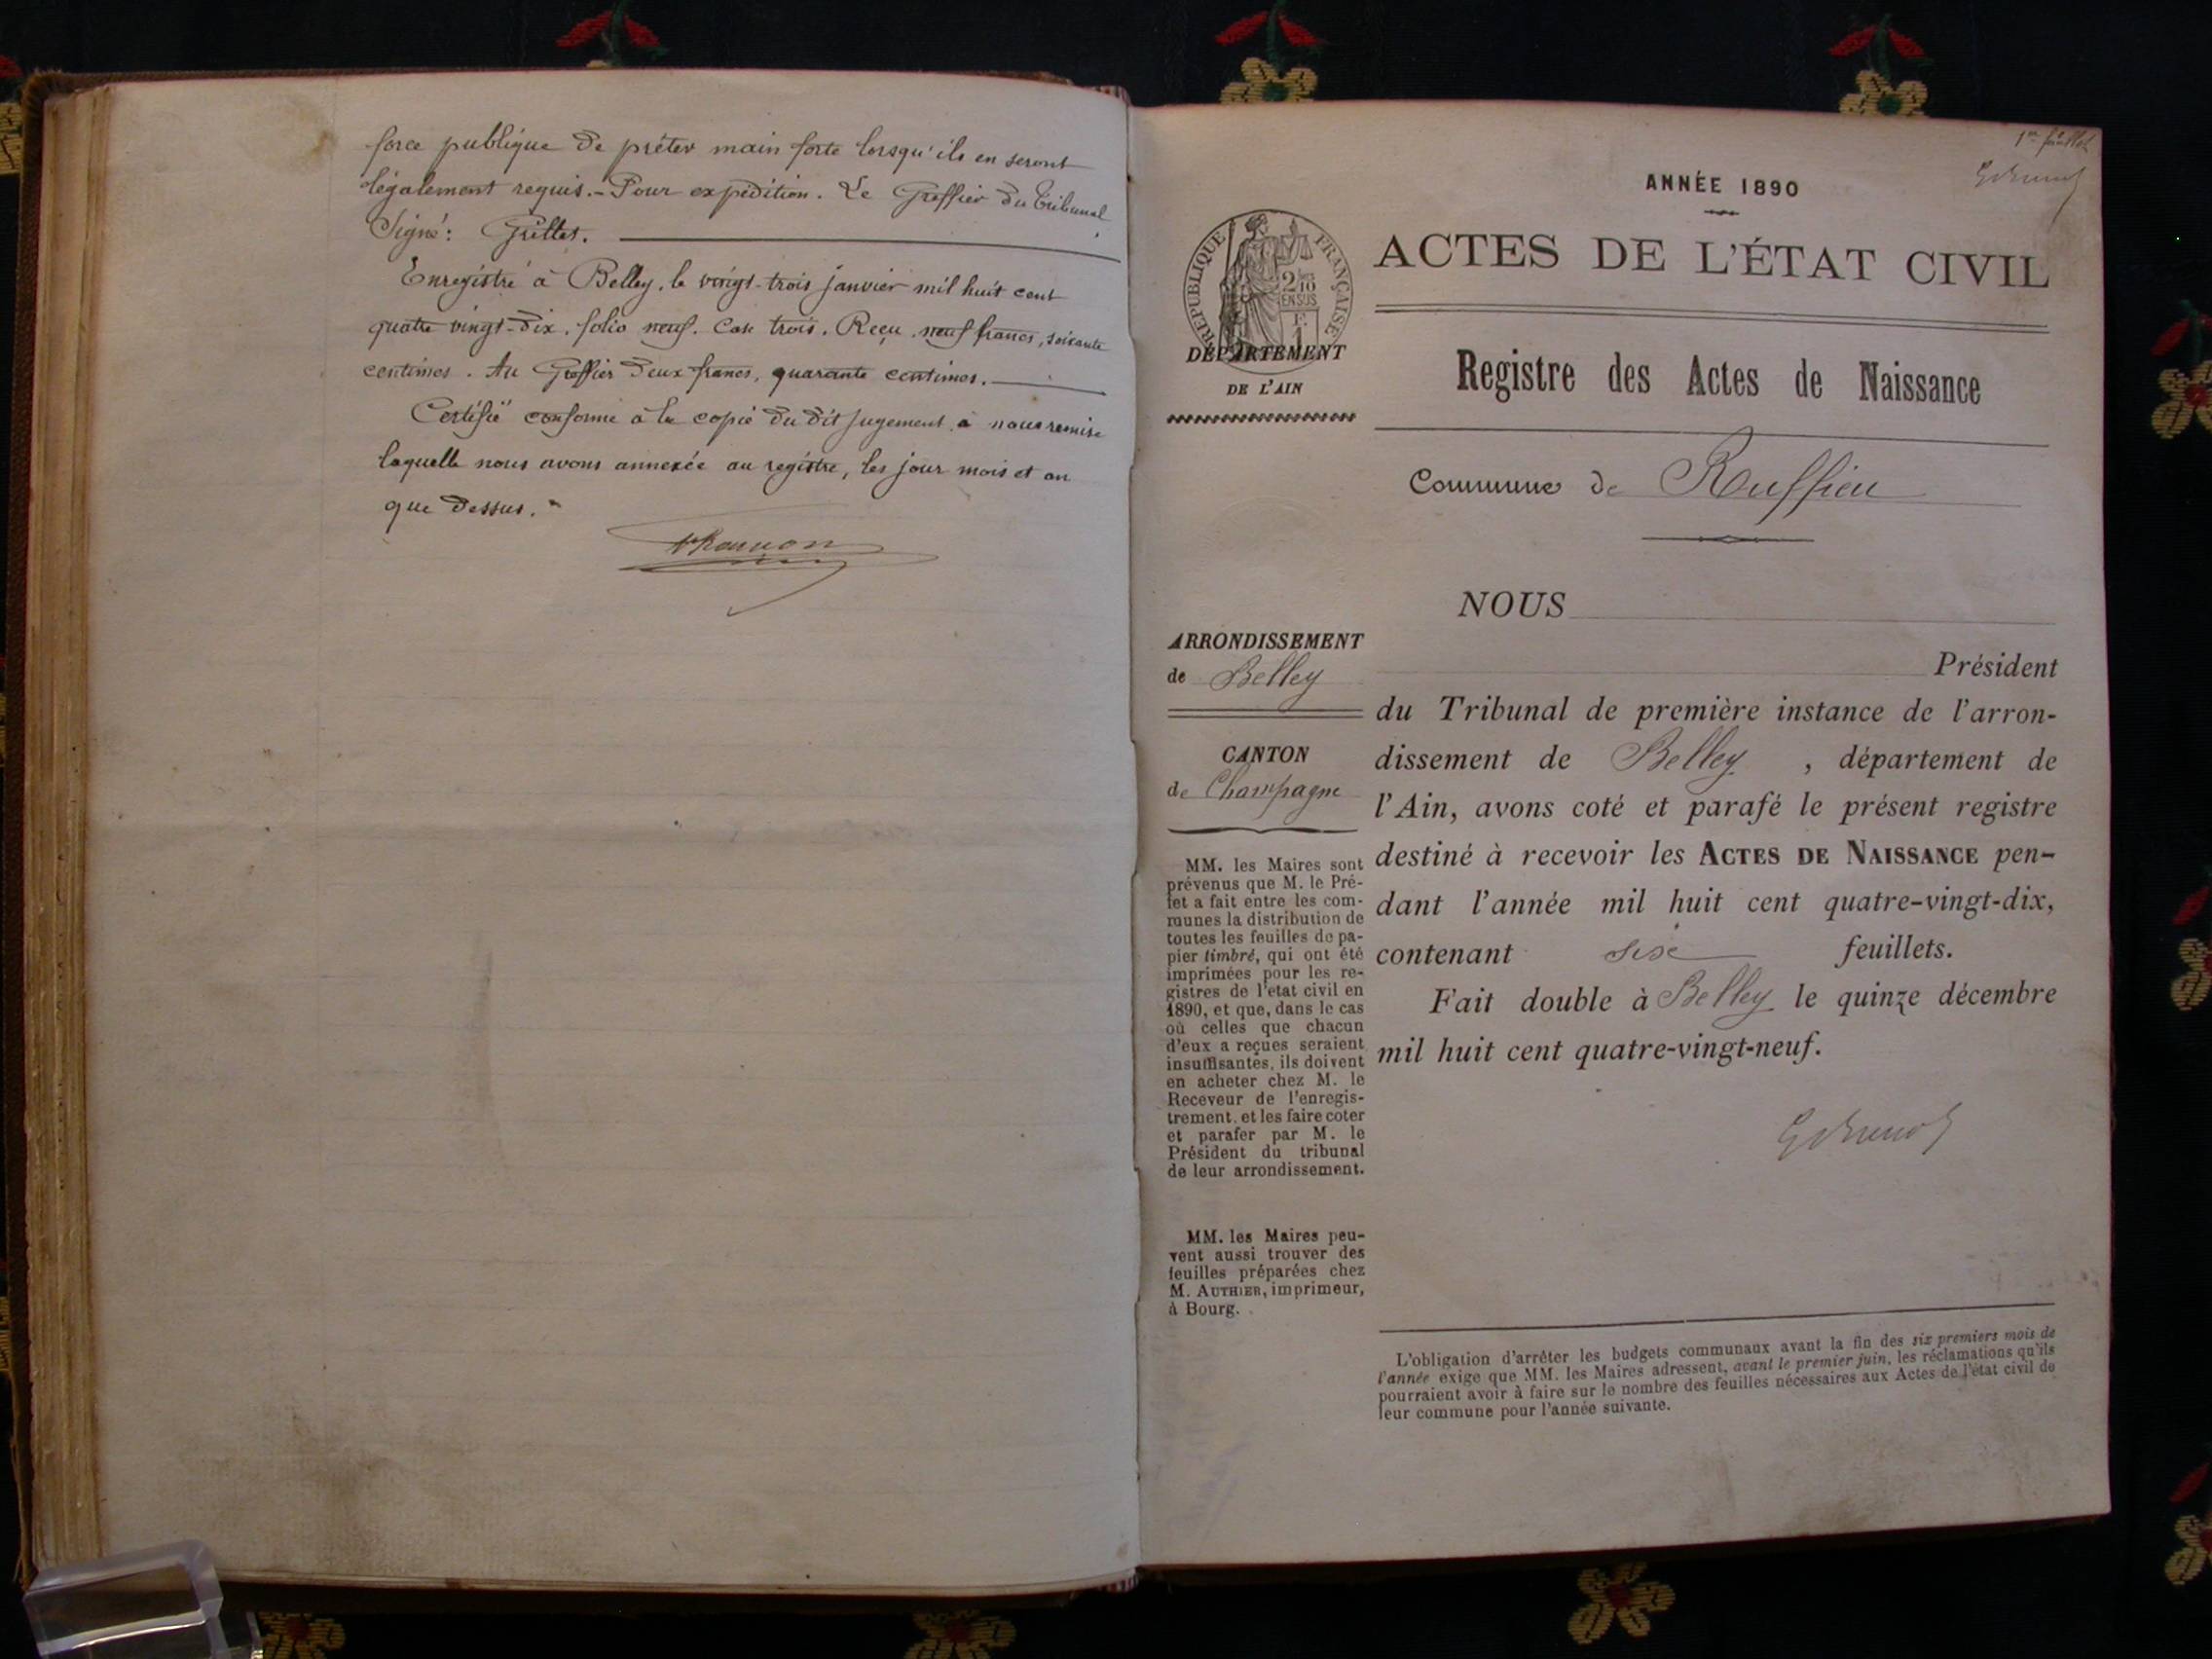 force publique de prêter main forte lorsqu'ils en seront
légalement requis. - Pour expédition. Le Greffier du Tribunal
Signé:
Enregistré à Belley, le vingt-trois janvier mil huit cent
quatre vingt-dix, folio neuf. Case trois. Reçu neuf francs, soixante
centimes. Au Greffier deux francs, quarante centimes.
Certifié conforme à la copie du dit jugement à nous remise
laquelle nous avons annexée au registre, les jour mois et an
que dessus.
1er feuillet
ANNÉE 1890
RÉPUBLIQUE FRANÇAISE
2/10
EN SUS
ACTES DE L'ÉTAT CIVIL
DÉPARTEMENT
DE L'AIN
Registre des Actes de Naissance
Commune de Ruffieu
NOUS
Président
du Tribunal de première instance de l'arron-
dissement de Belley, département de
l'Ain, avons coté et parafé le présent registre
destiné à recevoir les ACTES DE NAISSANCE pen-
dant l'année mil huit cent quatre-vingt-dix,
contenant six feuillets.
Fait double à Belley le quinze décembre
mil huit cent quatre-vingt-neuf.
ARRONDISSEMENT
de Belley
CANTON
de Champagne
MM. les Maires sont
prévenus que M. le Pré-
fet a fait entre les com-
munes la distribution de
toutes les feuilles de pa-
pier timbré, qui ont été
imprimées pour les re-
gistres de l'état civil en
1890, et que, dans le cas
où celles que chacun
d'eux a reçues seraient
insuffisantes, ils doivent
en acheter chez M. le
Receveur de l'enregis-
trement, et les faire coter
et parafer par M. le
Président du tribunal
de leur arrondissement.
MM. les Maires peu-
vent aussi trouver des
feuilles préparées chez
M. AUTHIER, imprimeur,
à Bourg.
L'obligation d'arrêter les budgets communaux avant la fin des six premiers mois de
l'année exige que MM. les Maires adressent, avant le premier juin, les réclamations qu'ils
pourraient avoir à faire sur le nombre des feuilles nécessaires aux Actes de l'état civil de
leur commune pour l'année suivante.